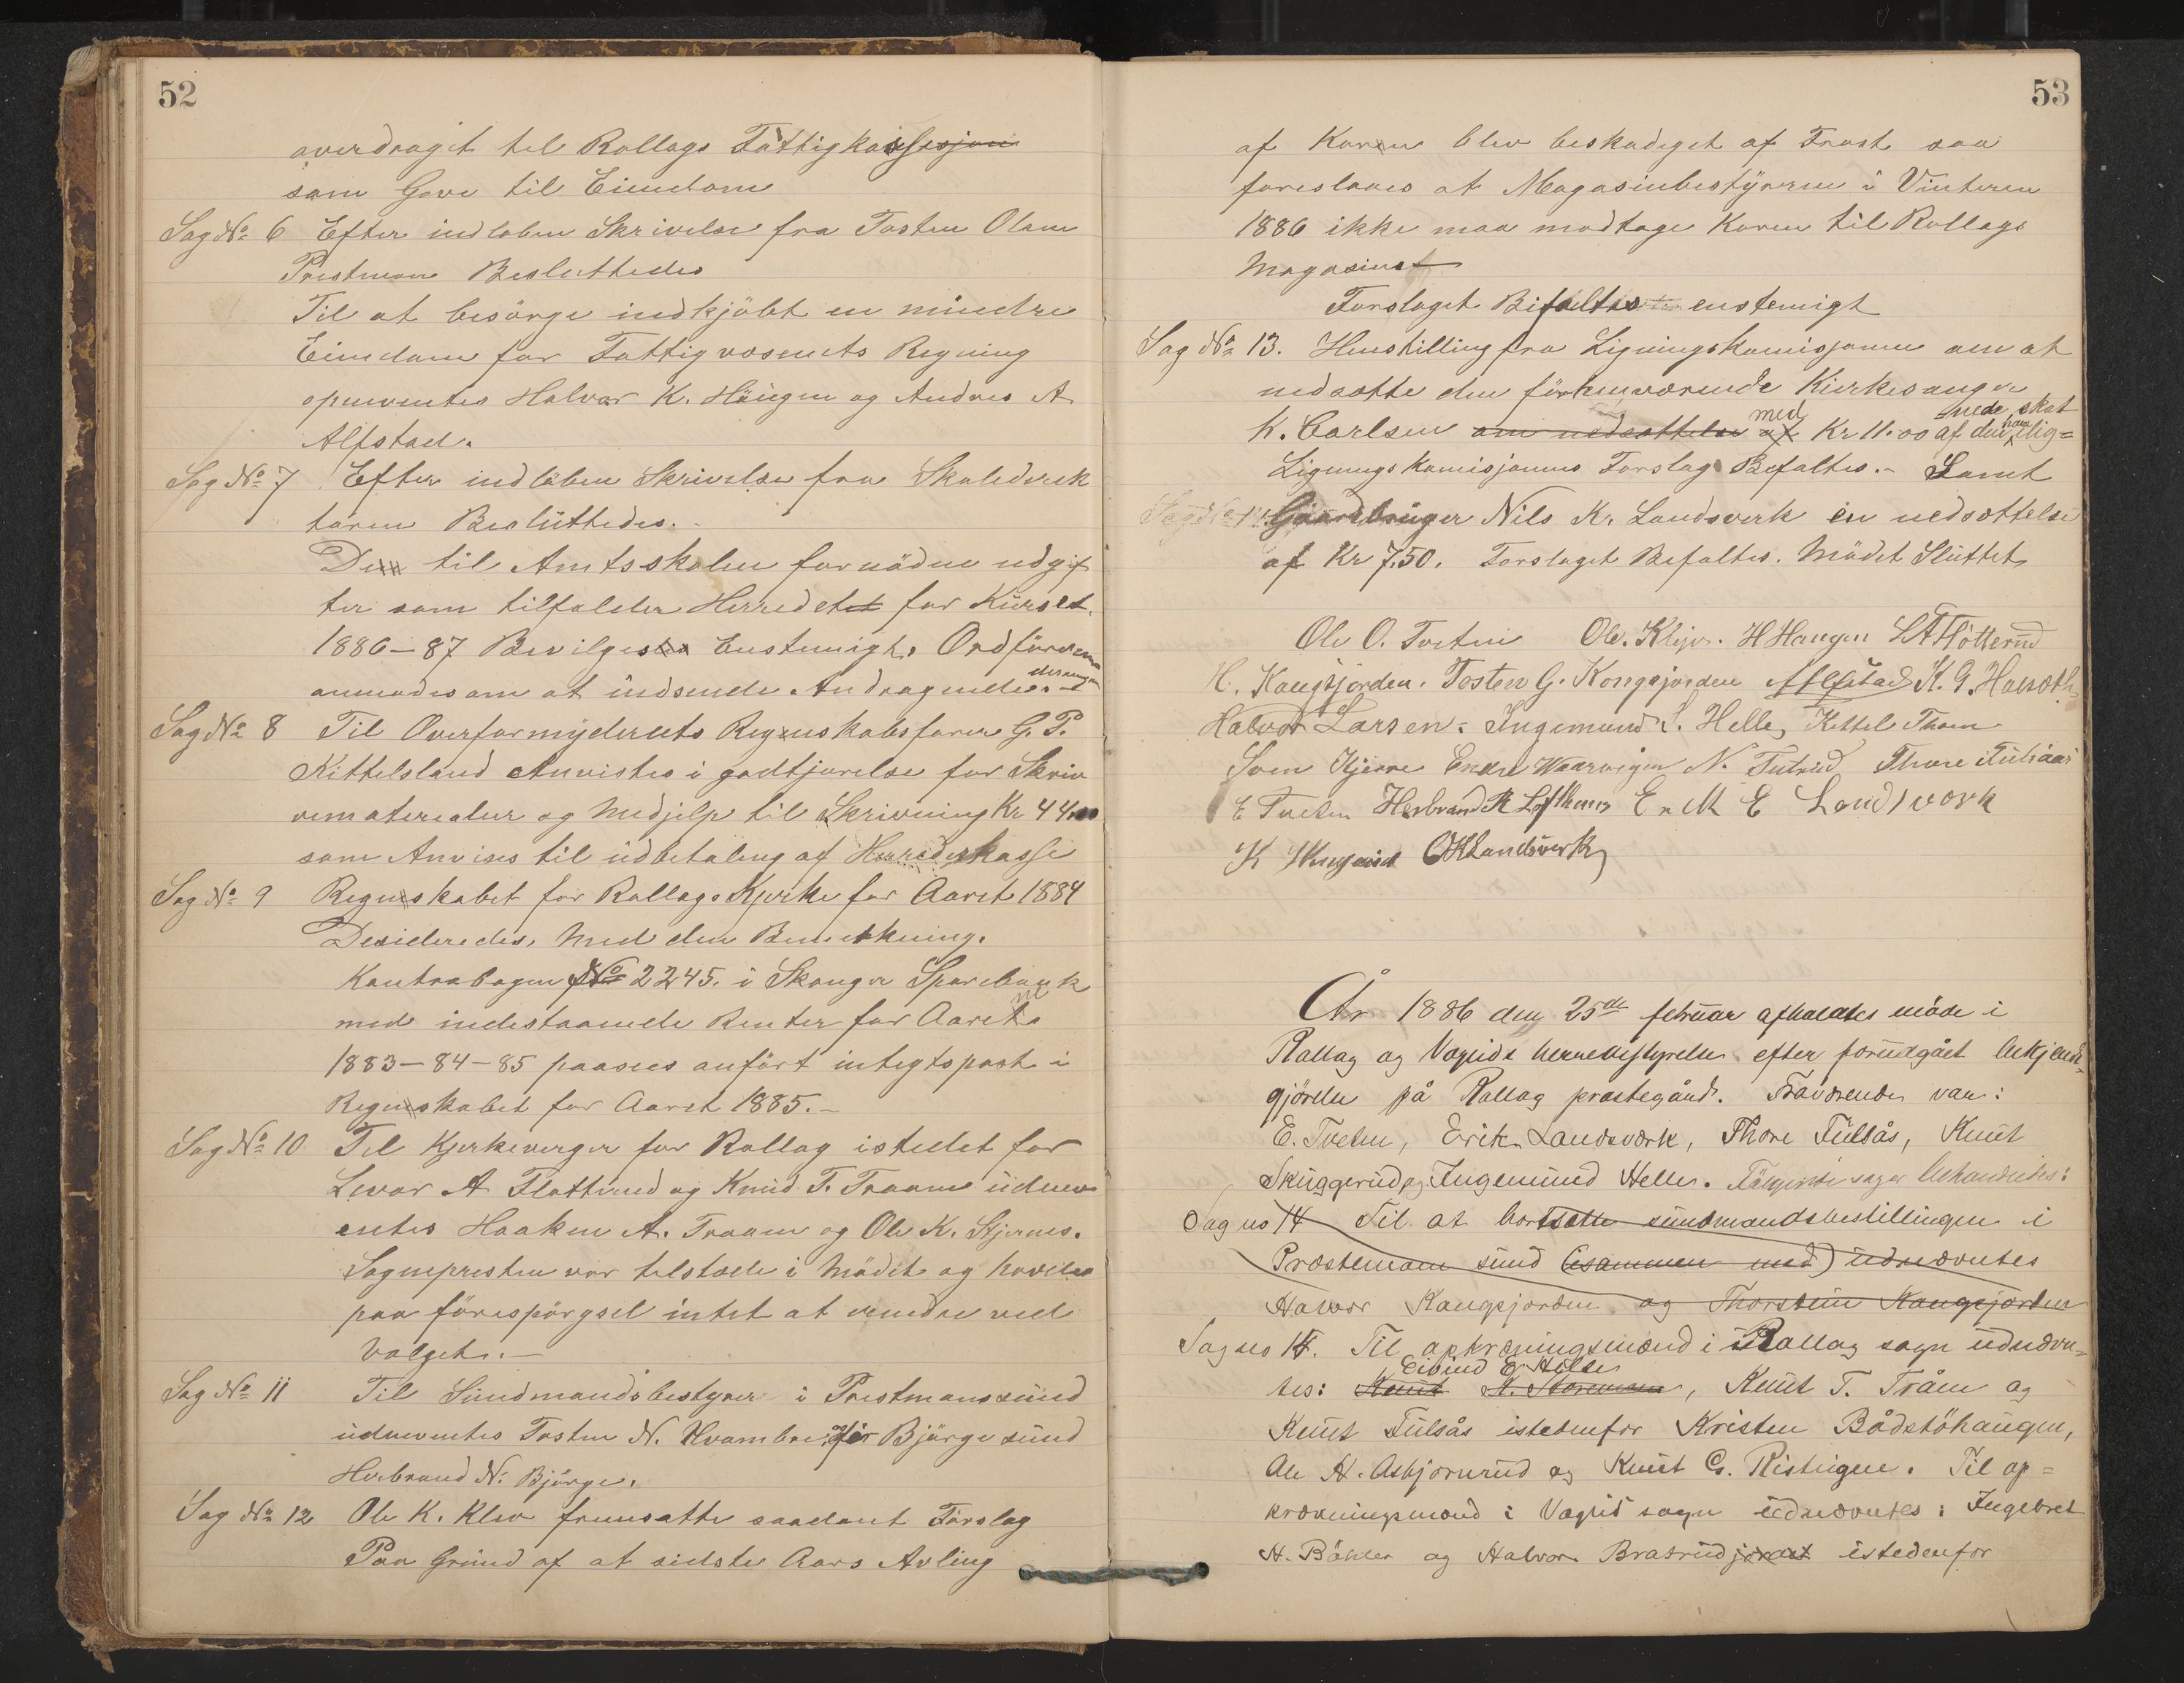 52
overdraget til Rollags Fattigkassesjon
som Gave til Eiendom
Sag No 6 Efter indløben Skrivelse fra Tosten Olsen
Prestmoen Besluttedes
Til at besörge indkjöbt en mindre
Eiendom for Fattigvæsenets Regning
opnevntes Halvor K. Höugen og Andres A
Alfstad.
Sag No 7 Efter indlöben Skrivelse fra Skoledirek
tören Beslüttedes.
Den til Amtsskolen fornödne udgif
ter som tilfalder Herredet for Kurset
1886-87 Bevilges Enstemigt. Ordföreren
anmodes om at indsende Andragende derom
Sag No 8 Til Overformynderiets Regnskabsförer G. P.
Kittelsland Anvistes i godtjörelse for Skriv
vematerialer og Medjelp til Skrivning Kr 44.00
som Anvises til üdbetaling af Herredskasse
Sag No 9 Regnskabet for Rollags Kjerke for Aaret 1884
Desideredes, Med den Bemerkning.
Kontrabogen No 2245. i Skouger Sparebank
med indestaaende Renter for Aarene
1883-84-85 paasees anfört integtspost i
Regnskabet for Aaret 1885.-
Sag No 10 Til Kjerkeverger for Rollag istedet for
Levor A Flottrud og Knud T. Traaen üdnev
entes Haaken A. Traaen og Ole K. Stjernes.
Sognepresten var tilstede i Mödet og havde
paa förespörgsel intet at erindre ved
Valget.-
Sag No 11 Til Sundmandsbestyrer i Prestmoensünd
üdnevntes Tosten N. Hvambe, for Björge sünd
Herbrand N. Björge.
Sag No 12 Ole K. Klev fremsatte saadant Förslag
Paa Grund af at sidste Aars Avling
53
af Koren blev beskadiget af Frost saa
foreslaaes at Magasinbestyreren i Vinteren
1886 ikke maa modtage Koren til Rollags
Magasinet
Forslaget Bifaltes enstemigt
Sag No 13. Henstilling fra Ligningskomisjonen om at
nedsætte den förhenværende Kirkesanger
K. Carlsen om nedsættelse af med Kr 11.00 af den ham ilig=
nede skat
Ligningskomisjonens Forslag Bifaltes.- Samt
Sag No 14 Gaardbruger Nils K. Landsverk en nedsættelse
af Kr 7.50. Forslaget Bifaltes. Mödet Slüttet
Ole O. Tveten Ole. Klev. H Haugen L A Flötterud
H. Kongsjorden. Tosten G. Kongsjorden A Alfstad K. G.
Halvor Larsen. Ingemund S. Helle, Kittel Thoen
Sven Hjerre Endre Waarvigen N. Tutrud Thore Fulsaas
E Tveten Herbrand R Lofthuus Erik E Landsverk
K OKLandsverk
År 1886 den 25de februar afholdtes møde i
Rollag og Vegglids herredsstyrelse efter forudgået bekjendt-
gjörelse på Rollag prestegård. Fraværende var:
E. Tveten, Erik Landsverk, Thore Fulsås, Knut
Skuggerud og Ingemund Helle. Fölgende sager behandledes:
Sag no 14 Til at bortsætte sundmandsbestillingen i
Præstemoen sund (sammen med) udnævntes
Halvor Kongsjorden og Thorstein Kongsjorden
Sag no 14. Til opkrævningsmænd i Rollag sogn udnævn-
tes: Knut N. Storemoen Eivind E Helle, Knut T. Tråen og
Knut Fulsås istedenfor Kristen Bådstöhaugen,
Ole H. Asbjornrud og Knut G. Risteigen. Til op=
krævningsmænd i Veglid sogn udnævntes: Ingebret
H. Bökler og Halvor Bratrudjordet istedenfor